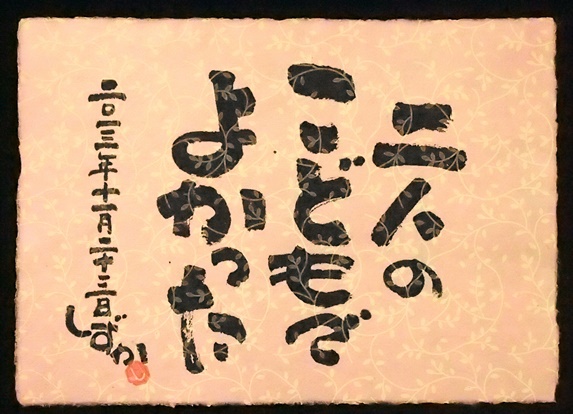 二人の
こどもで
よかった
二〇一三年十一月二十三日 しずか